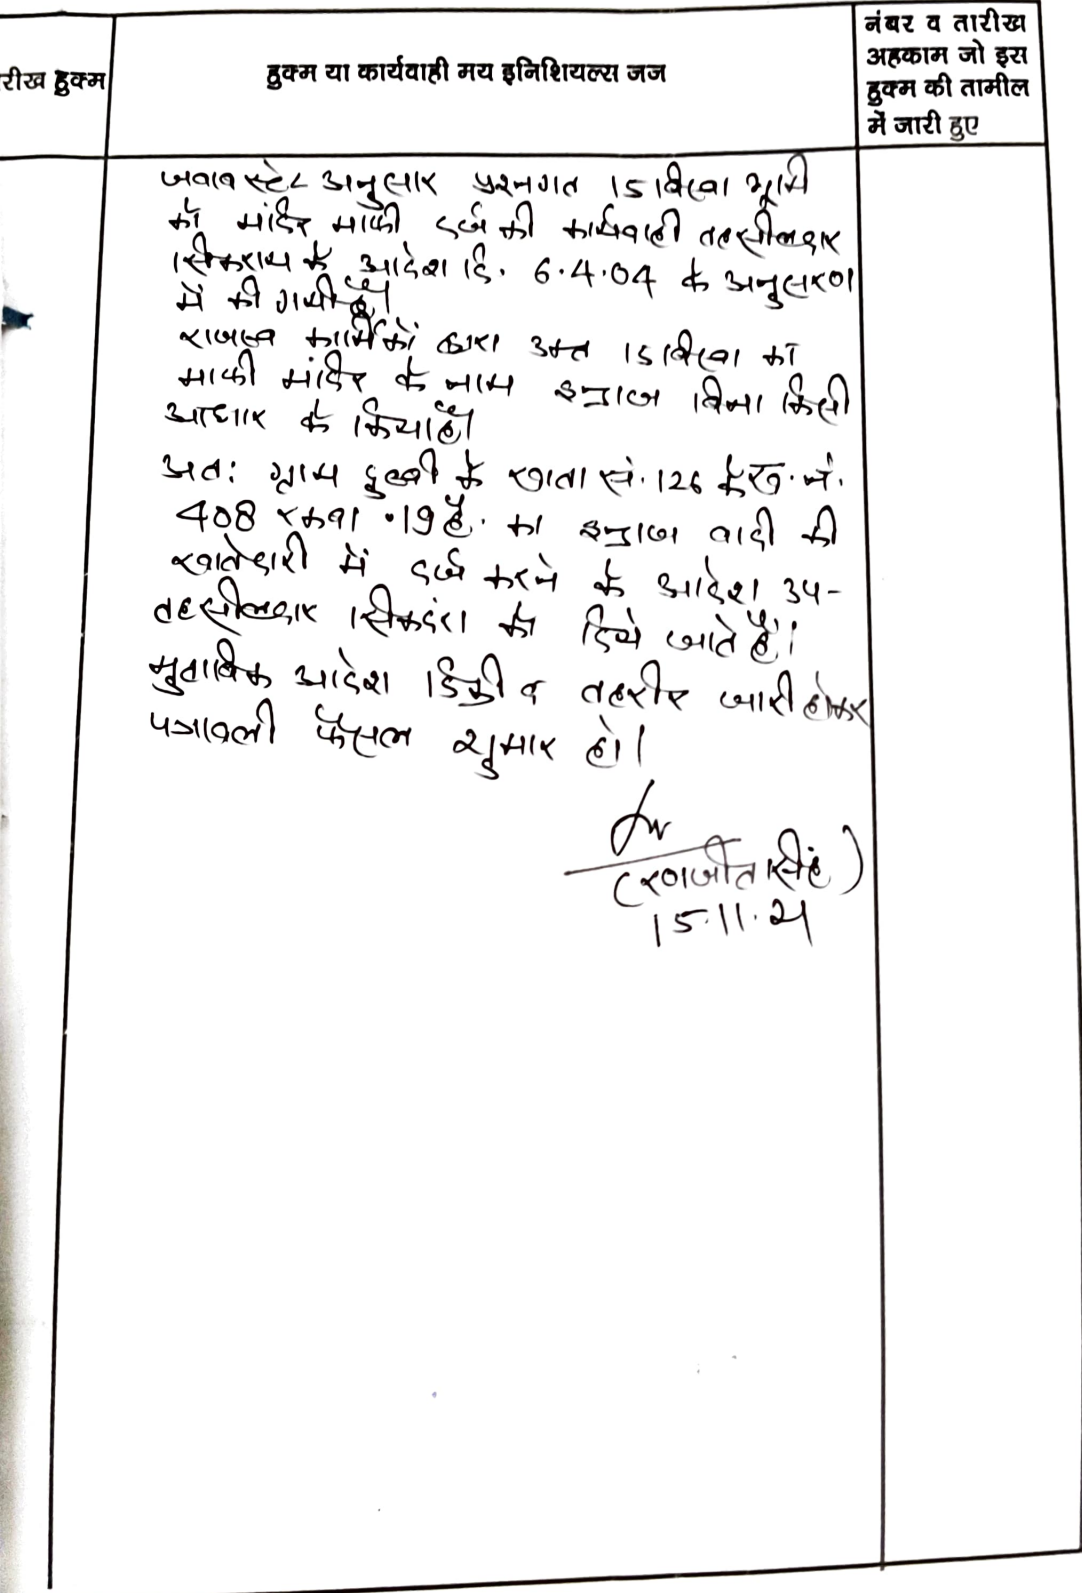 रीख हुक्म
हुक्म या कार्यवाही मय इनिशियल्स जज
नंबर व तारीख
अहकाम जो इस
हुक्म की तामील
में जारी हुए
जवाब स्टेट अनुसार प्रश्नगत 15 बिस्वा भूमि
को मंदिर माफी दर्ज की कार्यवाही तहसीलदार
सिकराय के आदेश दि. 6.4.04 के अनुसरण
में की गयी है।
राजस्व कार्मिकों द्वारा उक्त 15 बिस्वा को
माफी मंदिर के नाम इन्द्राज बिना किसी
आधार के किया है।
अतः ग्राम दुब्बी के खाता सं. 126 के ख. नं.
408 रकबा .19 है. का इन्द्राज वादी की
खातेदारी में दर्ज करने के आदेश उप-
तहसीलदार सिकंदरा को दिये जाते हैं।
मुताबिक आदेश डिक्री व तहरीर जारी होकर
पत्रावली फैसल शुमार हो।
(रणजीत सिंह)
15.11.21